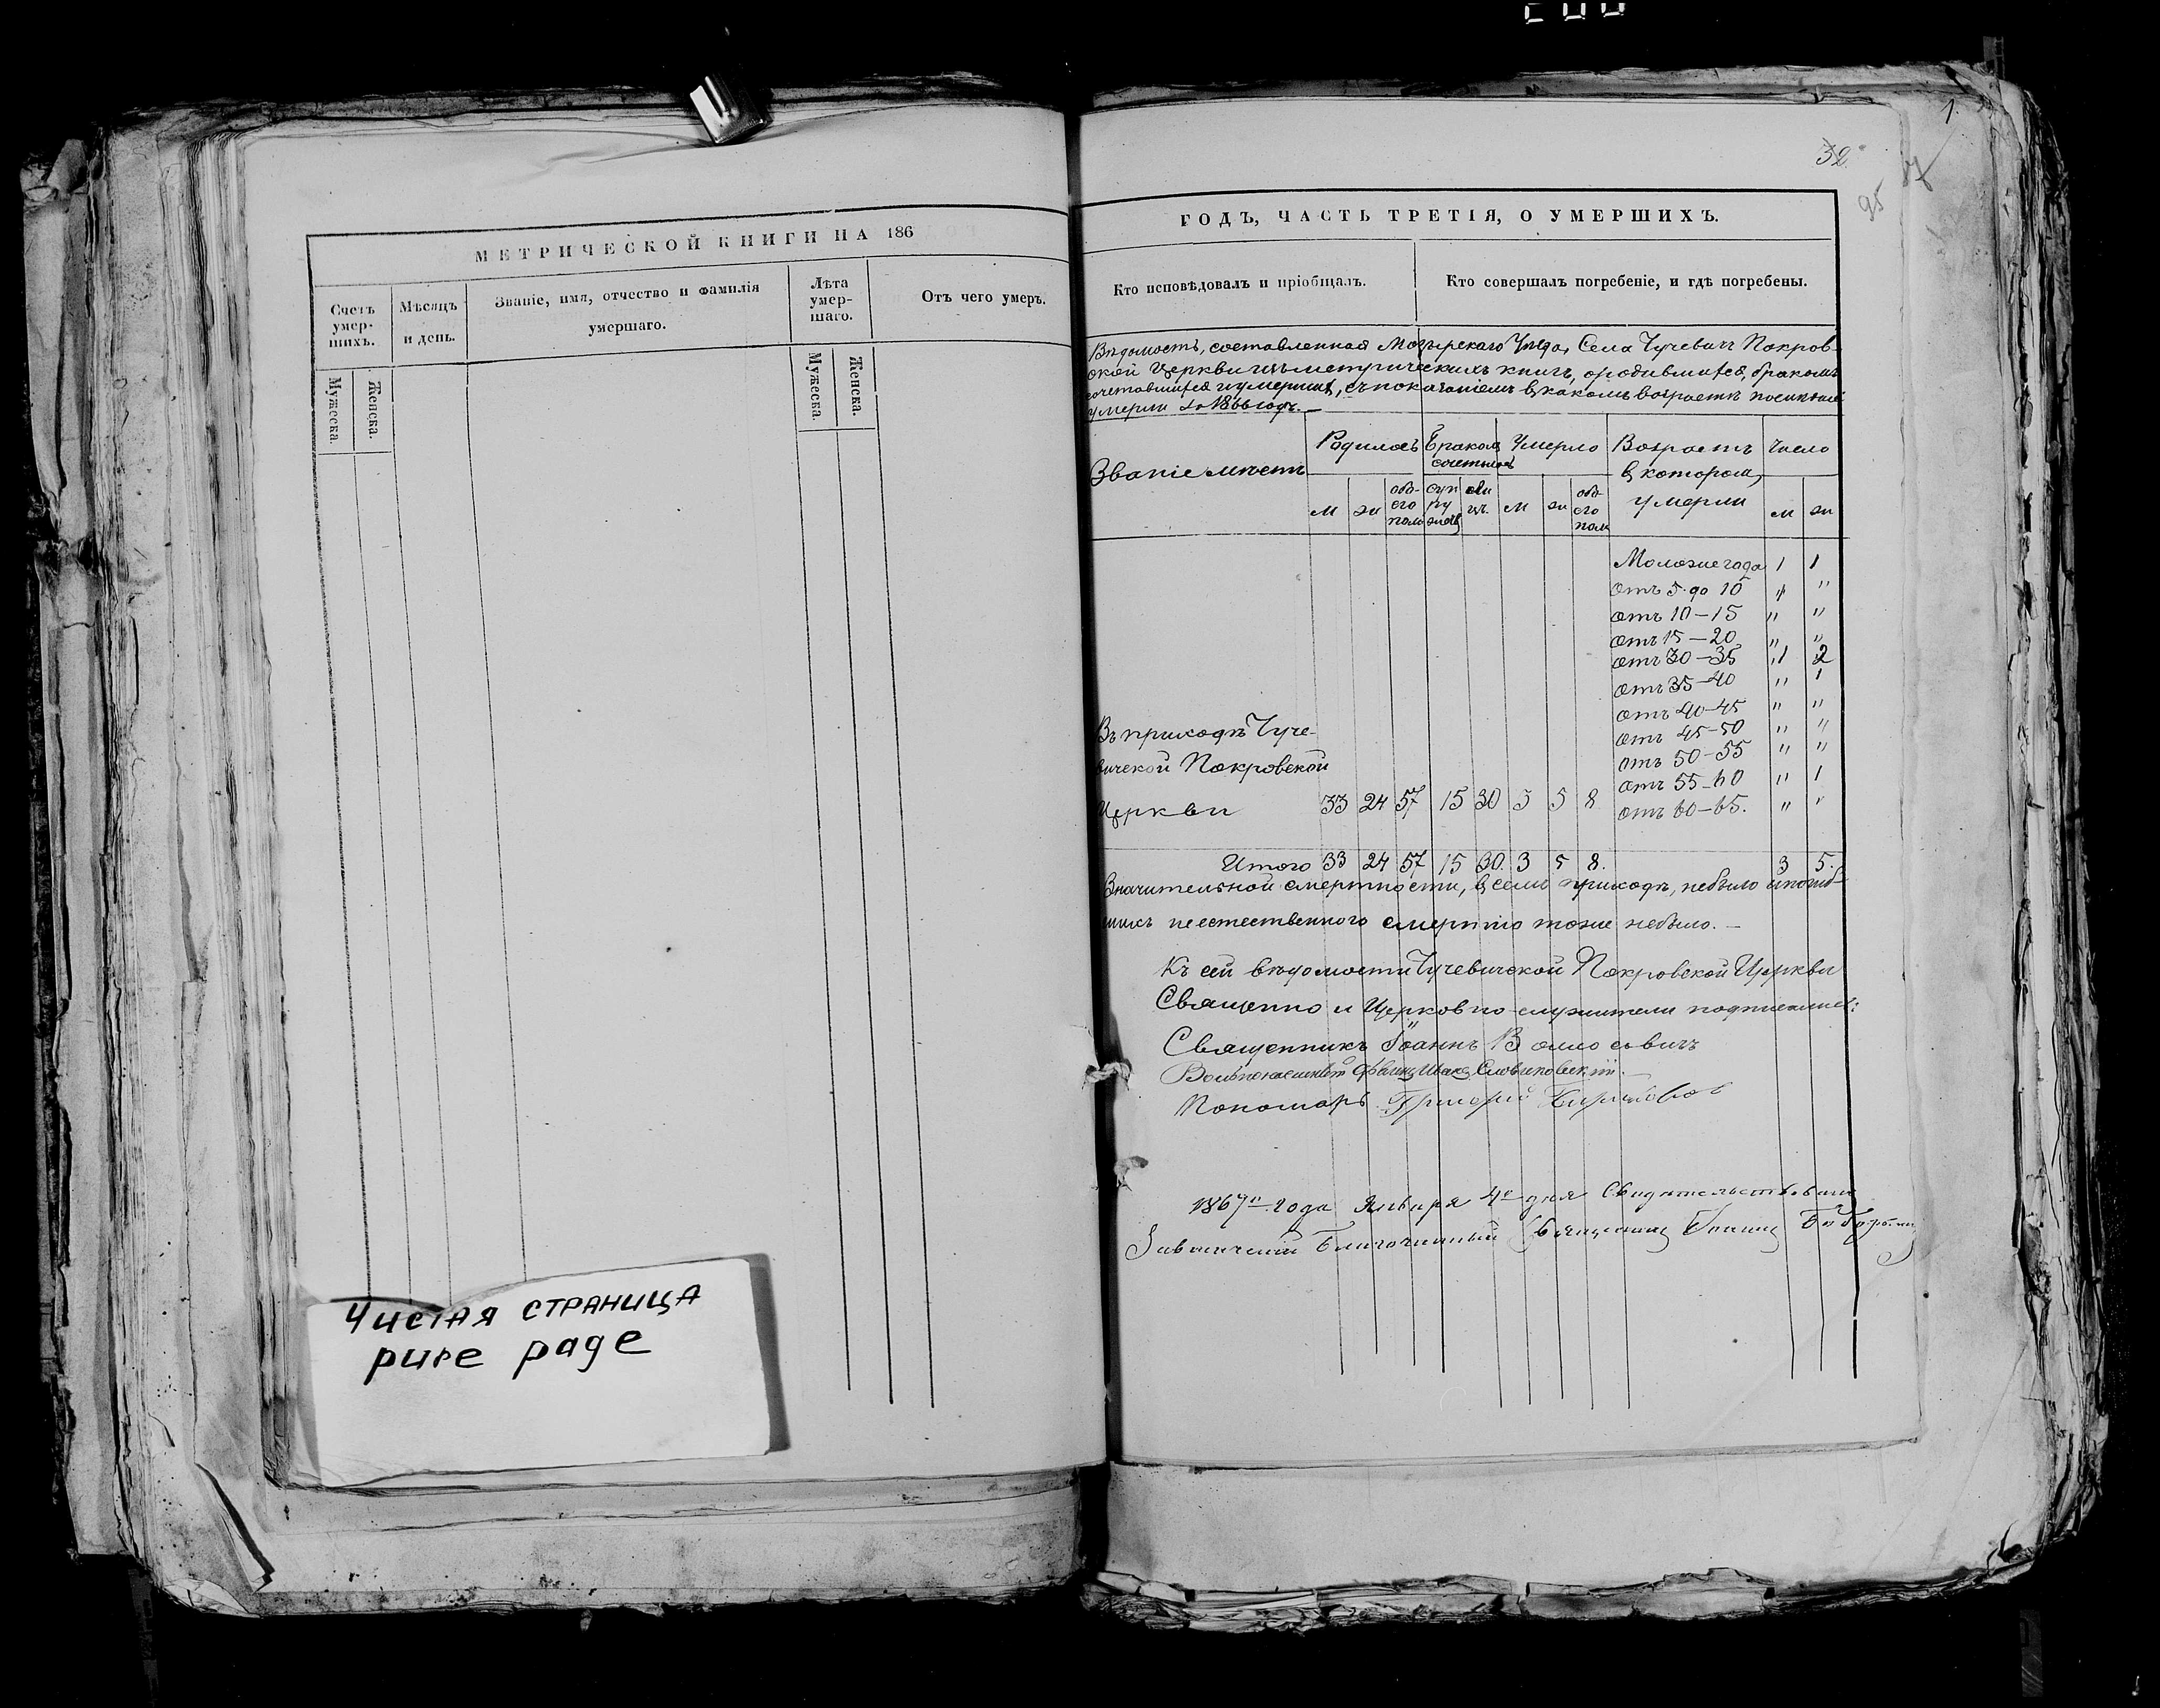 МЕТРИЧЕСКОЙ КНИГИ НА 186
Счетъ умер-шихъ.
Мужеска.
Женска.
Мѣсяцъ и день.
Званіе, имя, отчество и фамилія умершаго.
Лѣта умер-шаго.
Мужеска.
Женска.
Отъ чего умеръ.
Чистая страница
pure page
1.
32
95
ГОДЪ, ЧАСТЬ ТРЕТІЯ, О УМЕРШИХЪ.
Кто исповѣдовалъ и пріобщалъ.
Кто совершалъ погребеніе, и гдѣ погребены.
Вѣдомость, составленная Мозырскаго Уѣзда, Села Чучевичъ Покров-
ской Церкви изъ метрическихъ книгъ, о родившихся, бракомъ
сочетавшихся и умершихъ, съ показаніемъ въ какомъ возрастѣ
умерли за 1866 годъ. —
Званіе мѣстъ
Родилось
Бракомъ
Умерло
Возрастъ
Число
въ которомъ
умерли
м
ж
обо-
его
пола
суп
ру
жествъ
ли
цъ.
м
ж
обо-
его
пола
м
ж
Моложе года 1 1
отъ 5 до 10 " "
отъ 10—15 " "
отъ 15—20 " "
отъ 30—35 1 2
отъ 35—40 " 1
отъ 40—45 " "
отъ 45—50 " "
отъ 50—55 " "
отъ 55—60 " 1
отъ 60—65. " "
Въ приходѣ Чуче-
вичской Покровской
Церкви 33 24 57 15 30 3 5 8
Итого 33 24 57 15 30 3 5 8. 3 5.
Значительной смертности, въ семъ приходѣ, небыло и погиб-
шихъ неестественного смертію тоже небыло. —
Къ сей вѣдомости Чучевичской Покровской Церкви
Священно и Церковно-служители подписались:
Священникъ Іоаннъ
Пономарь Григорій
1867 года Января 4 дня Свидѣтельствовалъ
Благочинный Священникъ Іоаннъ